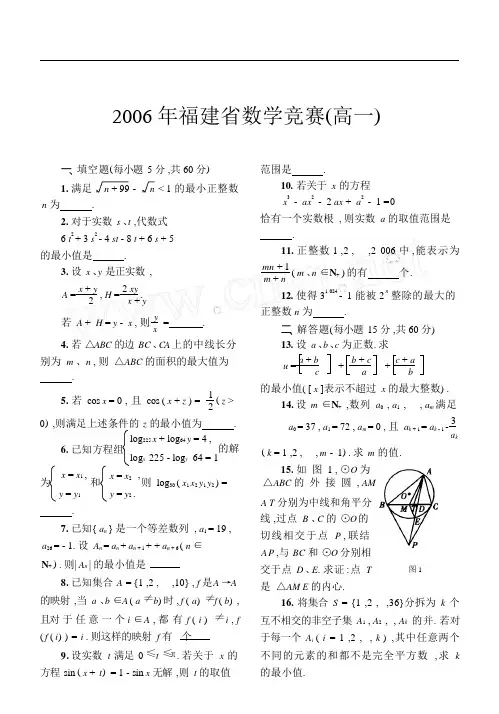 2006年福建省数学竞赛(高一)
一、填空题(每小题 5 分,共 60 分)
1. 满足 √n + 99 - √n < 1 的最小正整数
n 为      .
2. 对于实数 s 、t ,代数式
6 t² + 3 s² - 4 st - 8 t + 6 s + 5
的最小值是      .
3. 设 x 、y 是正实数 ,
A = x + y / 2 , H = 2 xy / x + y .
若 A + H = y - x , 则 y / x =      .
4. 若 △ABC 的边 BC 、CA 上的中线长分
别为 m 、n , 则 △ABC 的面积的最大值为
.
5. 若 cos x = 0 , 且 cos ( x + z ) = 1 / 2 ( z >
0) ,则满足上述条件的 z 的最小值为      .
6. 已知方程组 log₂₂₅ x + log₆₄ y = 4 , logₓ 225 - log 64 = 1 的解
为 x = x₁ , y = y₁ 和 x = x₂ , y = y₂ . 则 log₃₀ ( x₁ x₂ y₁ y₂ ) =
.
7. 已知{ aₙ } 是一个等差数列 , a₁ = 19 ,
a₂₆ = - 1. 设 Aₙ = aₙ + aₙ₊₁ + + aₙ₊₆ ( n ∈
N₊ ) . 则| Aₙ | 的最小值是
8. 已知集合 A = {1 ,2 , ,10} , f 是A → A
的映射 ,当 a 、b ∈ A ( a ≠ b) 时 , f ( a) ≠ f ( b) ,
且对 于 任 意 一 个 i ∈ A , 都 有 f ( i ) ≠ i , f
( f ( i) ) = i . 则这样的映射 f 有      个.
9. 设实数 t 满足 0 ≤ t ≤ π . 若关于 x 的
方程 sin ( x + t) = 1 - sin x 无解 ,则 t 的取值
范围是      .
10. 若关于 x 的方程
x³ - ax² - 2 ax + a² - 1 = 0
恰有一个实数根 , 则实数 a 的取值范围是
.
11. 正整数 1 ,2 , ,2 006 中 ,能表示为
mn + 1 / m + n ( m 、n ∈ N₊ ) 的有      个.
12. 使得 3¹ ⁰²⁴ - 1 能被 2ⁿ 整除的最大的
正整数 n 为      .
二、解答题(每小题 15 分 ,共 60 分)
13. 设 a 、b 、c 为正数. 求
u = [ a + b / c ] + [ b + c / a ] + [ c + a / b ]
的最小值( [ x ]表示不超过 x 的最大整数) .
14. 设 m ∈ N₊ ,数列 a₀ , a₁ , , aₘ 满足
a₀ = 37 , a₁ = 72 , aₘ = 0 , 且 aₖ₊₁ = aₖ₋₁ - 3 / aₖ
( k = 1 ,2 , , m - 1) . 求 m 的值.
15. 如 图 1 , ⊙O 为
△ABC 的 外 接 圆 , AM
A T 分别为中线和角平分
线 ,过点 B 、C 的 ⊙O 的
切线相交于点 P ,联结
A P ,与 BC 和 ⊙O 分别相
交于点 D 、E. 求证 : 点 T
是 △AM E 的内心.
A
O
B
M
D
T
C
E
P
图 1
16. 将集合 S = {1 ,2 , ,36}分拆为 k 个
互不相交的非空子集 A₁ , A₂ , , Aₖ 的并. 若对
于每一个 Aᵢ ( i = 1 ,2 , , k ) ,其中任意两个
不同的元素的和都不是完全平方数 ,求 k
的最小值.